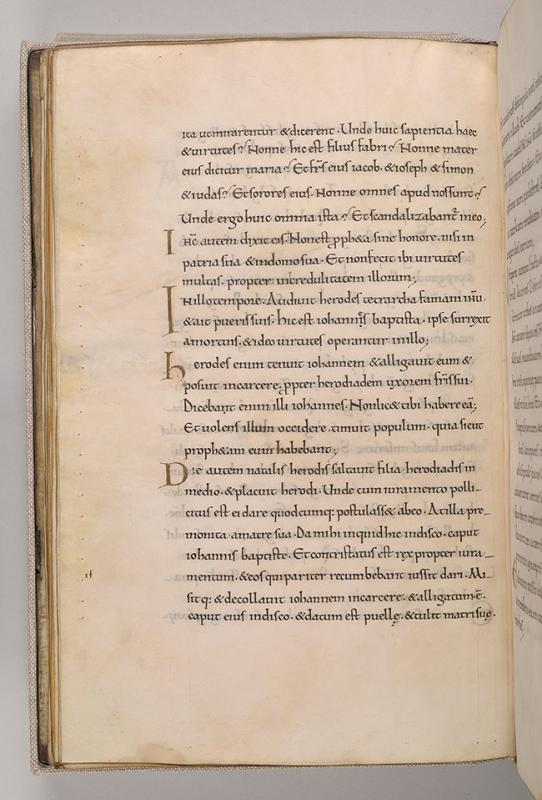 ita ut mirarentur & dicerent. Unde huic sapientia haec
& uirtutes? Nonne hic est filius fabri? Nonne mater
eius dicitur maria? Et frs eius iacob. & ioseph & simon
& iudas? Et sorores eius. Nonne omnes apud nos sunt?
Unde ergo huic omnia ista? Et scandalizabant̄ in eo;
Ihc̄ autem dixit eis. Non est proph&a sine honore. nisi in
patria sua & in domo sua. Et non fecit ibi uirtutes
multas. propter incredulitatem illorum;
In illo tempore. Audiuit herodes tetrarcha famam ihu̅
& ait pueris suis. hic est iohannis baptista. ipse surrexit
a mortuis. & ideo uirtutes operantur in illo;
herodes enim tenuit iohannem & alligauit eum &
posuit in carcere; ppter herodiadem uxorem fr̄is sui.
Dicebant enim illi iohannes. Non lic& tibi habere eā;
Et uolens illum occidere. timuit populum. quia sicut
proph&am eum habebant;
Die autem natalis herodis saltauit filia herodiadis in
medio. & placuit herodi. Unde cum iuramento polli-
citus est ei dare quodcumq; postulass& ab eo. At illa pre-
monita a matre sua. Da mihi inquid hic in disco. caput
iohannis baptiste. Et contristatus est rex propter iura-
mentum. & eos qui pariter recumbebant iussit dari. Mi-
sitq; & decollauit iohannem in carcere. & alligatum ē.
caput eius in disco. & datum est puellę. & tulit matri suę.